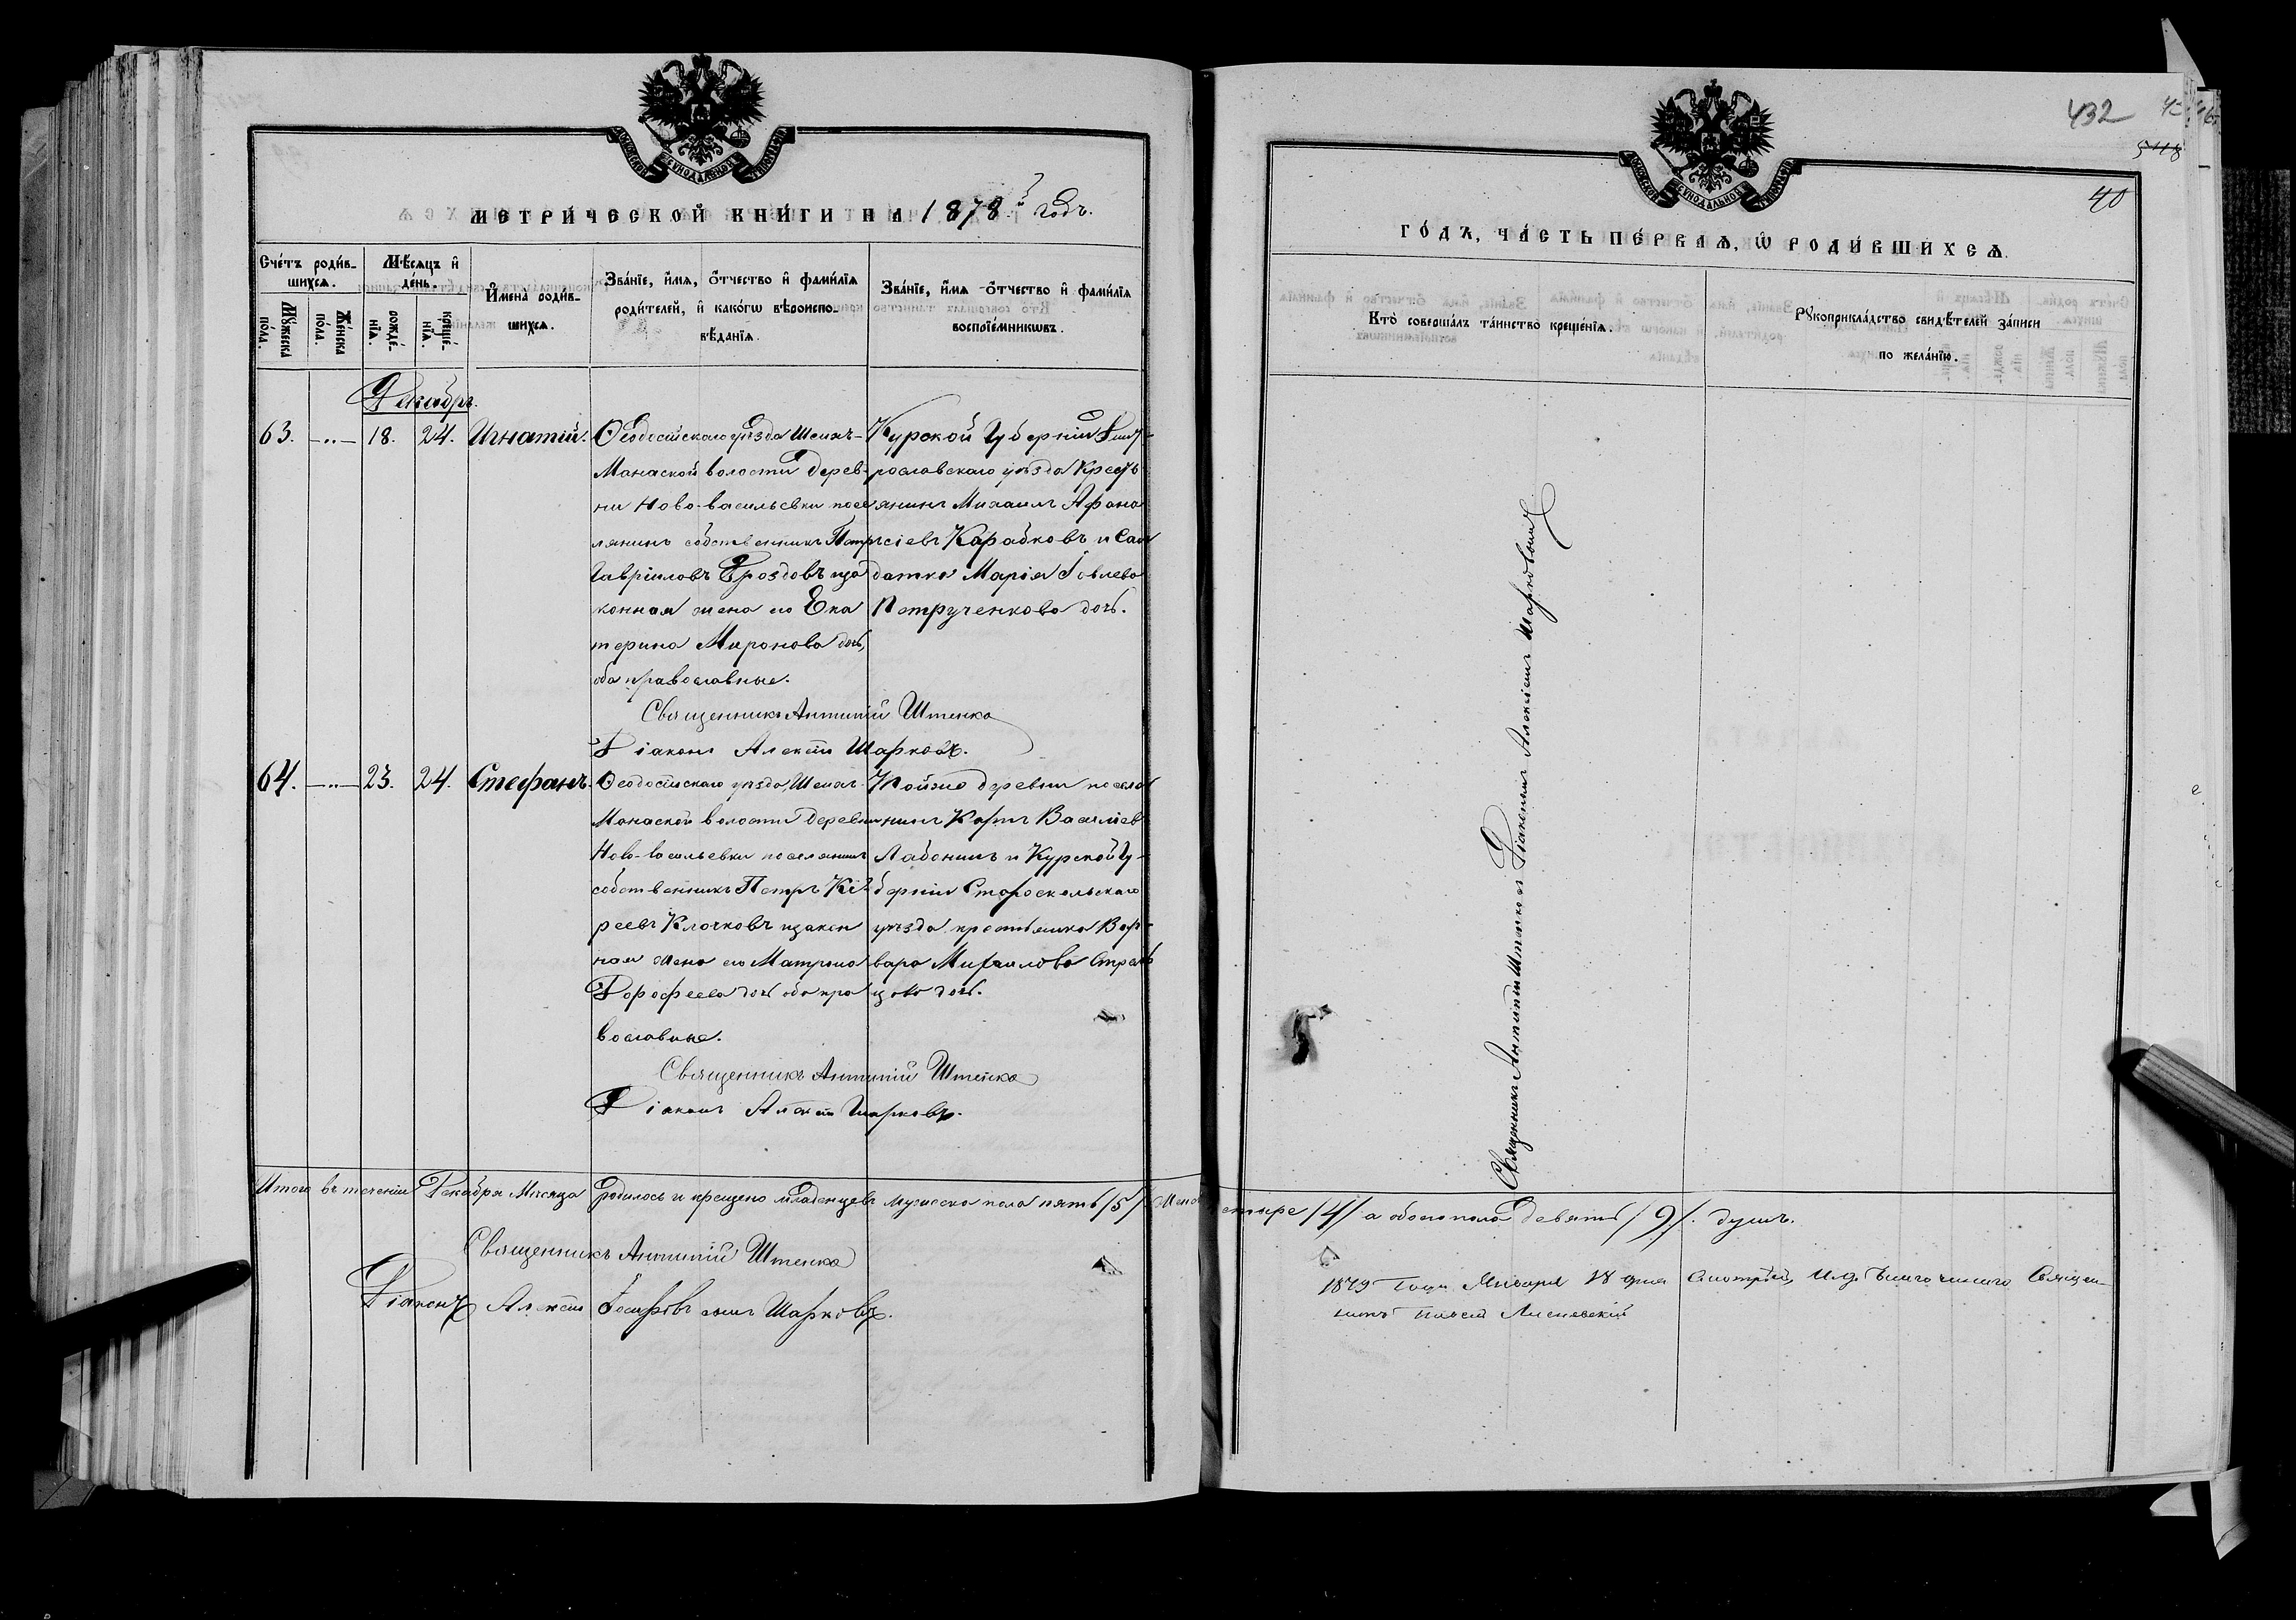 МЕТРИ́ЧЕСКОЙ КНИ́ГИ НА 1878й годъ.
Сче́тъ роди́в-
шихсѧ.
Мѣ́сѧцъ и҆
де́нь.
Му́жеска
по́ла.
Же́нска
по́ла.
рожде́-
нїѧ.
креще́-
нїѧ.
И҆мена̀ роди́в-
шихсѧ.
Зва́нїе, и҆́мѧ, ѻ҆́тчество и҆ фами́лїѧ
роди́телей, и҆ како́гѡ вѣроиспо-
вѣ́данїѧ.
Зва́нїе, и҆́мѧ ѻ҆́тчество и҆ фами́лїѧ
воспрїе́мникѡвъ.
Декабрь.
63. -"- 18. 24. Игнатій.
Ѳеодосійскаго уѣзда Шейхъ-
Манаской волости дерев-
ни Ново-васильевки посе
лянинъ собственникъ Петръ
Гавріиловъ Дроздовъ и за
конная жена его Ека
терина Миронова дочь,
оба православные.
Курской Губерніи
уѣзда Крестъ
янинъ Михаилъ Афана
сіевъ Карабковъ и Сол
датка Марія Іовлева
Петрученкова дочь.
Священникъ Антипій Штенко
Діаконъ Алексій Шарковъ.
64. -"- 23. 24. Стефанъ.
Ѳеодосійскаго уѣзда, Шейхъ-
Монаской волости деревни
Ново-васильевки поселянинъ
собственникъ Петръ Кі-
реевъ Клочковъ и закон
ная жена его Матрона
Дорофеева дочь оба пра
вославные.
Тойже деревни поселя
нинъ Карпъ Васіліевъ
Лабонинъ и Курской Гу-
берніи Староскольскаго
уѣзда крестьянка Вар-
вара Михаилова Стрель
цова дочь.
Священникъ Антипій Штенко
Діаконъ Алексій Шарковъ.
Итого въ теченіи Декабря Мѣсяца родилось и крещено младенцевъ мужеска пола пять /5/ женс
Священникъ Антипій Штенко
Діаконъ Алексій Іосифовъ сынъ Шарковъ.
432
40
ГО́ДЪ, ЧА́СТЬ ПЕ́РВАѦ, Ѡ҆ РОДИ́ВШИХСѦ.
Кто̀ соверша́лъ та́инство креще́нїѧ.
Рꙋкоприкла́дство свидѣ́телей за́писи
по жела́нїю.
Священникъ Антипій Штенко съ Діакономъ Алексіемъ Шарковымъ
етыре /4/ а обоего пола девять /9/. душъ.
1879 года Января 18 дня Смотрѣлъ И.д. Благочиннаго Священ-
никъ